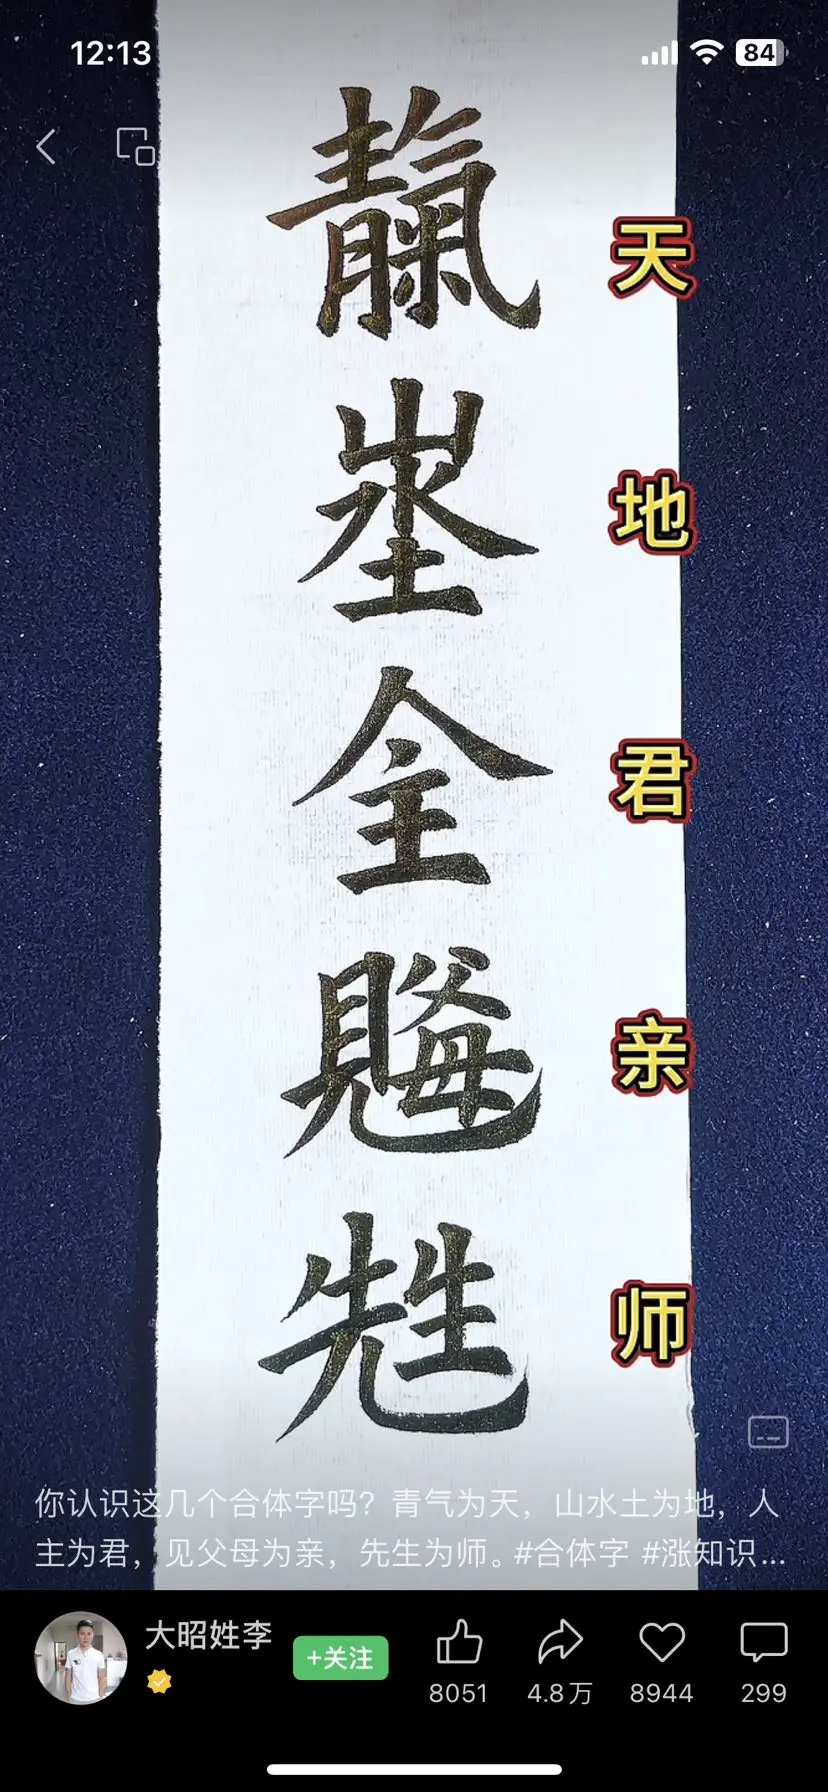 12:13
84
靝
埊
𠆿
天
地
君
亲
师
你认识这几个合体字吗？青气为天，山水土为地，人
主为君，见父母为亲，先生为师。#合体字 #涨知识...
大昭姓李
+关注
8051
4.8万
8944
299